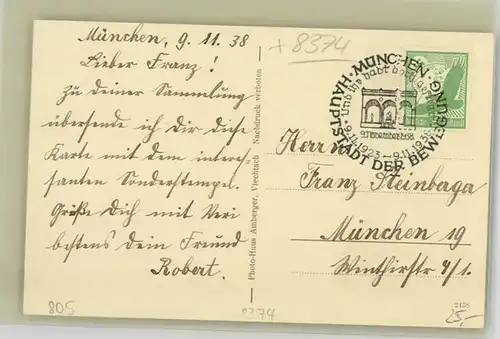 München, 9. 11. 38
Lieber Franz!
Zu deiner Sammlung
übersende ich Dir diese
Karte mit dem interes-
santen Sonderstempel.
Grüße Dich mit
bestens Dein Freund
Robert.
805
8374
Photo-Haus Amberger, Viechtach Nachdruck verboten
+ 8374
MÜNCHEN·
HAUPTSTADT DER BEWEGUNG
Und ihr habt doch
9. November 1938
9.11.1923-9.11.1938
Herrn
Franz
München 19
Winthirstr 4/1.
2438
25,-